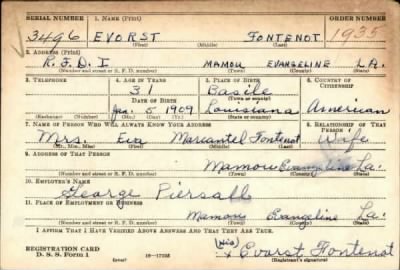 SERIAL NUMBER 1. NAME (Print) ORDER NUMBER
3496 EVORST FONTENOT 1935
(First) (Middle) (Last)
2. ADDRESS (Print)
R.F.D. I MAMOU EVANGELINE LA.
(Number and street or R. F. D. number) (Town) (County) (State)
3. TELEPHONE 4. AGE IN YEARS 5. PLACE OF BIRTH 6. COUNTRY OF CITIZENSHIP
31 Basile
DATE OF BIRTH (Town or county)
5 1909 Louisiana American
(Exchange) (Number) (Mo.) (Day) (Yr.) (State or country)
7. NAME OF PERSON WHO WILL ALWAYS KNOW YOUR ADDRESS 8. RELATIONSHIP OF THAT PERSON
Mrs. Eva Marcantel Fontenot Wife
(Mr., Mrs., Miss) (First) (Middle) (Last)
9. ADDRESS OF THAT PERSON
Mamou Evangeline La.
(Number and street or R. F. D. number) (Town) (County) (State)
10. EMPLOYER'S NAME
George Piersall
11. PLACE OF EMPLOYMENT OR BUSINESS
Mamou Evangeline La.
(Number and street or R. F. D. number) (Town) (County) (State)
I AFFIRM THAT I HAVE VERIFIED ABOVE ANSWERS AND THAT THEY ARE TRUE.
REGISTRATION CARD
D. S. S. Form 1 (over) 16—17105 (His) x Evorst Fontenot